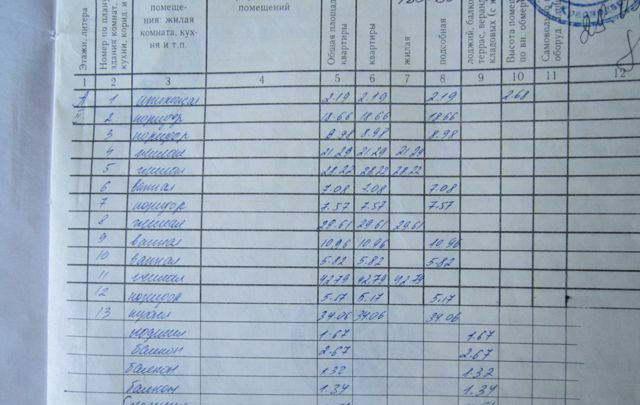 Этажи, литера
Номер по плану
здания комнат,
кухни, корид. и
помеще-
ния: жилая
комната, кух-
ня и т.п.
помещений
Общая площадь
квартиры
квартиры
жилая
подсобная
лоджий, балко
террас, веранд
кладовых (с к
Высота поме
по вн. обмер
Самоволь
оборуд
1 2 3 4 5 6 7 8 9 10 11 12
1 2.19 2.19 2.19 2.68
2 коридор 18.66 18.66 18.66
3 коридор 8.98 8.98
4 жилая 21.29 21.29 21.29
5 жилая 28.22 28.22 28.22
6 ванная 7.08 7.08
7 коридор 7.57 7.57 7.57
8 жилая 29.61 29.61 29.61
9 ванная 10.96 10.96 10.96
10 ванная 5.82 5.82 5.82
11 жилая 42.79 42.79 42.79
12 коридор 5.17 5.17 5.17
13 кухня 34.06 34.06
лоджия 1.67 1.67
балкон 2.67 2.67
балкон 1.32 1.32
балкон 1.34 1.34